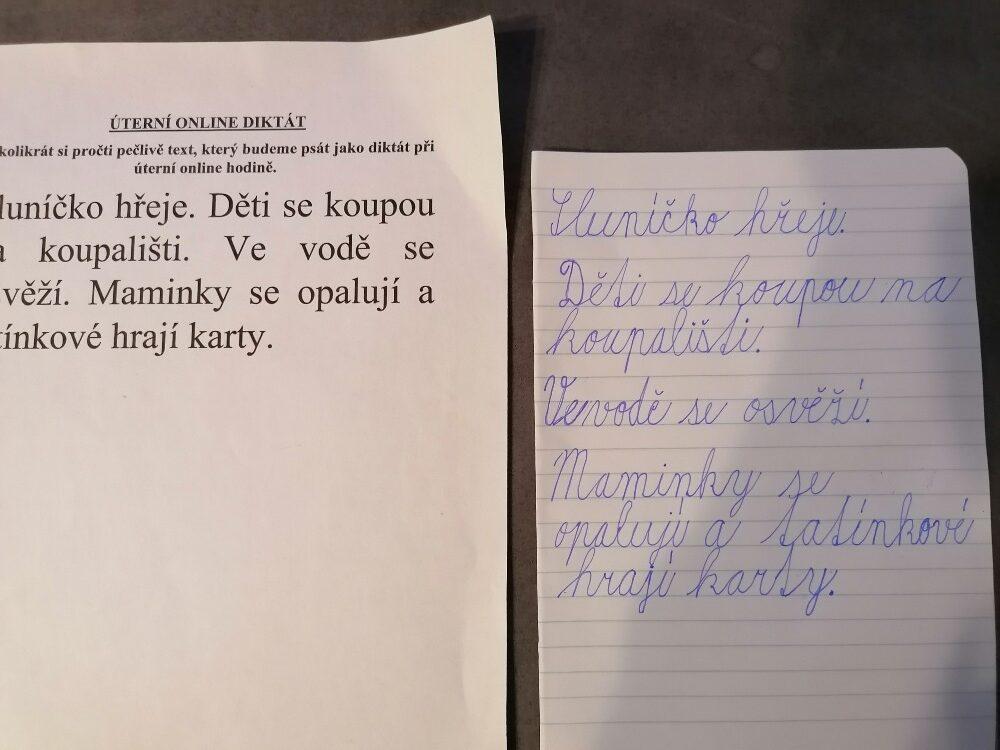 ÚTERNÍ ONLINE DIKTÁT
kolikrát si pročti pečlivě text, který budeme psát jako diktát při
úterní online hodině.
luníčko hřeje. Děti se koupou
a koupališti. Ve vodě se
svěží. Maminky se opalují a
tínkové hrají karty.
Sluníčko hřeje.
Děti se koupou na
koupališti.
Ve vodě se osvěží.
Maminky se
opalují a tatínkové
hrají karty.